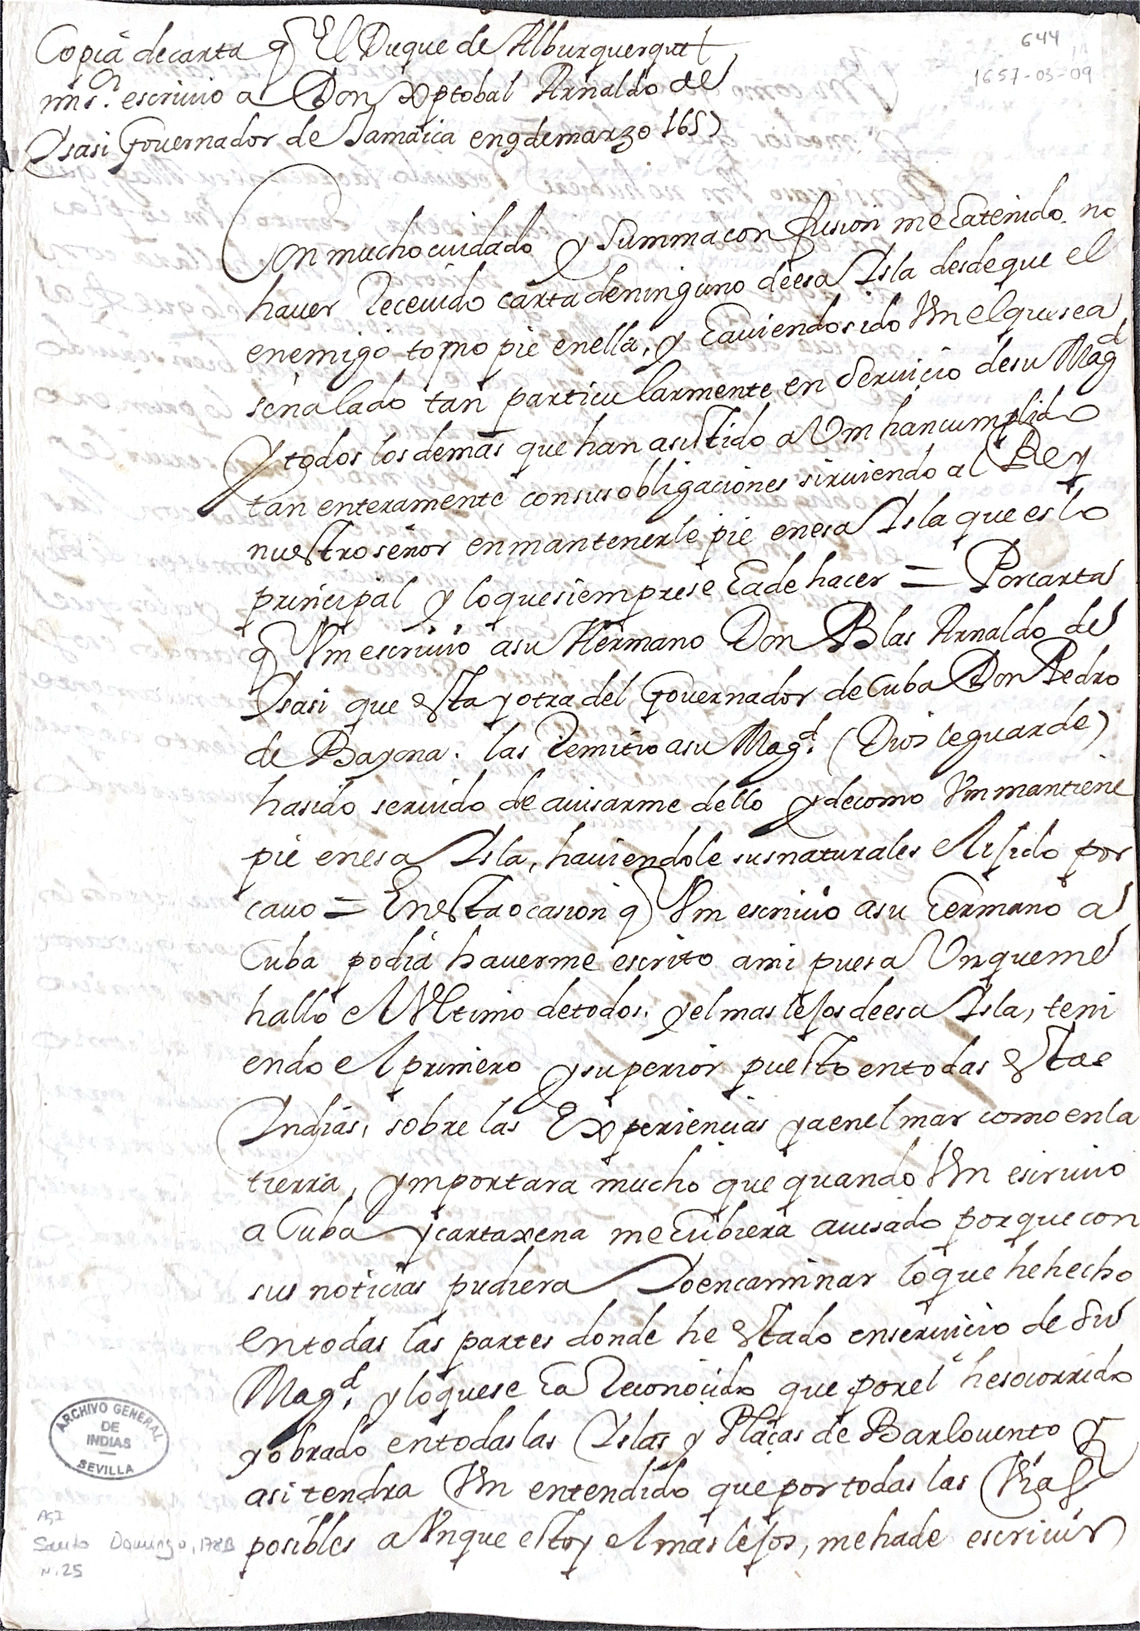 644
1657-03-09
Copia de carta q El Duque de Alburquerque
mi sr. escriuio a Don Xptobal Arnaldo de
Ysasi Gouernador de Jamaica en 9 de marzo 1657
Con mucho cuidado y summa confusion me a tenido no
hauer receuido carta de ninguno de esa Isla desde que el
enemigo tomo pie en ella, y hauiendo sido Vm el que se a
señalado tan particularmente en seruicio de su Magd
Y todos los demas que han asistido a Vm han cumplido
tan enteramente con sus obligaciones siruiendo al Rey
nuestro señor en mantenerle pie en esa Isla que es lo
principal y lo que siempre se ha de hacer = Por carta
q Vm escriuio a su Hermano Don Blas Arnaldo de
Ysasi que esta y otra del Gouernador de Cuba Don Pedro
de Bayona. las remitio a su Magd. (Dios le guarde)
ha sido seruido de auisarme dello y de como Vm mantiene
pie en esa Isla, hauiendole sus naturales elijido por
cauo = En esta ocasion q Vm escriuio a su hermano a
Cuba podia hauerme escrito a mi pues aunque me
hallo el Vltimo de todos. y el mas lejos de esa Isla, teni
endo el primero y superior puesto en todas estas
Indias, sobre las Experiencias ya en el mar como en la
tierra, ymportara mucho que quando Vm escriuio
a Cuba y cartaxena me hubiera auisado porque con
sus noticias pudiera Yo encaminar lo que he hecho
en todas las partes donde he estado en seruicio de su
Magd. y lo que se ha reconocido que por el he socorrido
y obrado en todas las Islas y Plaças de Barlouento y
asi tendra Vm entendido que por todas las Vias
posibles aunque estoy el mas lejos, me ha de escriuir
ARCHIVO GENERAL
DE
INDIAS
SEVILLA
AGI
Santo Domingo, 178B
N. 25